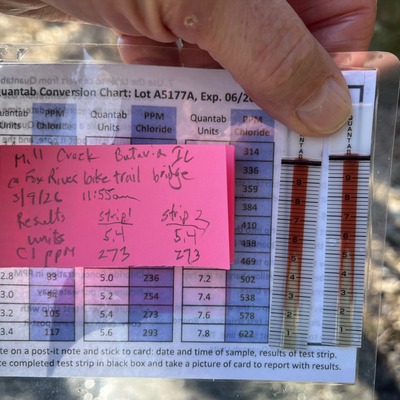 Quantab Conversion Chart: Lot A5177A, Exp. 06/20
Units Chloride Units Chloride Units Chloride
PPM Quantab PPM Quantab PPM
314
336
359
384
410
438
469
Mill Creek Batavia IL
@ Fox River bike trail bridge
3/9/26 11:55am
Results strip1 strip2
units 5.4 5.4
Cl ppm 273 273
2.8 93 5.0 236 7.2 502
3.0 5.2 254 7.4 538
3.2 105 5.4 273 7.6 578
3.4 117 5.6 293 7.8 622
QUANTAB QUANTAB
9 9
8 8
7 7
6 6
5 5
4 4
3 3
2 2
1 1
te on a post-it note and stick to card: date and time of sample, results of test strip.
ce completed test strip in black box and take a picture of card to report with results.